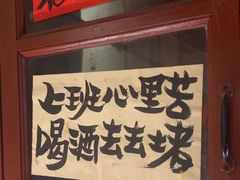 上班心里苦
喝酒去去堵